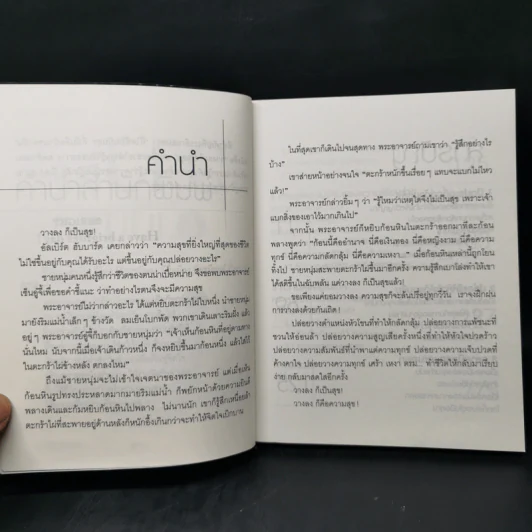 คำนำ
วางลง ก็เป็นสุข!
อัลเบิร์ต ฮับบาร์ด เคยกล่าวว่า "ความสุขที่ยิ่งใหญ่ที่สุดของชีวิต
ไม่ใช่ขึ้นอยู่กับคุณได้รับอะไร แต่ขึ้นอยู่กับคุณปล่อยวางอะไร"
ชายหนุ่มคนหนึ่งรู้สึกว่าชีวิตของตนน่าเบื่อหน่าย จึงขอพบพระอาจารย์
เซ็นผู้ซึ้เพื่อขอคำชี้แนะ ว่าทำอย่างไรตนจึงจะมีความสุข
พระอาจารย์ไม่ว่ากล่าวอะไร ได้แต่หยิบตะกร้าไม้ใบหนึ่ง นำชายหนุ่ม
มายังริมแม่น้ำเล็กๆ ข้างวัด ลมเย็นโบกพัด พวกเขาเดินเลาะริมฝั่ง แล้ว
อยู่ๆ พระอาจารย์ผู้ซึ้ก็บอกกับชายหนุ่มว่า "เจ้าเห็นก้อนหินที่อยู่ตามทาง
นั่นไหม นับจากนี้เมื่อเจ้าเดินก้าวหนึ่ง ก็จงหยิบขึ้นมาก้อนหนึ่ง แล้วใส่ไว้
ในตะกร้าไม้ข้างหลัง ตกลงไหม"
ถึงแม้ชายหนุ่มจะไม่เข้าใจเจตนาของพระอาจารย์ แต่เมื่อเห็น
ก้อนหินรูปทรงประหลาดมากมายริมแม่น้ำ ก็พยักหน้าด้วยความยินดี
พลางเดินและก้มหยิบก้อนหินไปพลาง ไม่นานนัก เขาก็รู้สึกเหนื่อยล้า
ตะกร้าไม้ที่สะพายอยู่ด้านหลังก็หนักอึ้งเกินกว่าจะทำให้จิตใจเบิกบาน
ในที่สุดเขาก็เดินไปจนสุดทาง พระอาจารย์ถามเขาว่า "รู้สึกอย่างไร
บ้าง"
เขาส่ายหน้าอย่างจนใจ "ตะกร้าหนักขึ้นเรื่อยๆ แทบจะแบกไม่ไหว
แล้ว!"
พระอาจารย์กล่าวยิ้มๆ ว่า "รู้ไหมว่าเหตุใดจึงไม่เป็นสุข เพราะเจ้า
แบกสิ่งของเอาไว้มากเกินไป"
จากนั้น พระอาจารย์ก็หยิบก้อนหินในตะกร้าออกมาทีละก้อน
พลางพูดว่า "ก้อนนี้คืออำนาจ นี่คือเงินทอง นี่คือหญิงงาม นี่คือความ
ทุกข์ นี่คือความกลัดกลุ้ม นี่คือความเหงา..." เมื่อก้อนหินเหล่านี้ถูกโยน
ทิ้งไป ชายหนุ่มสะพายตะกร้าไม้ขึ้นมาอีกครั้ง ความรู้สึกเบาโล่งทำให้เขา
ได้สติขึ้นในฉับพลัน แค่วางลง ก็เป็นสุขแล้ว!
ขอเพียงค่อยวางลง ความสุขก็จะล้นปรี่อยู่ทุกวี่วัน เราจึงฝึกฝน
การวางลงด้วยกันเถิด!
ปล่อยวางตำแหน่งหัวโขนที่ทำให้กลัดกลุ้ม ปล่อยวางการแพ้ชนะที่
ชวนให้อ่อนล้า ปล่อยวางความสูญเสียครั้งหนึ่งที่ทำให้หัวใจปวดร้าว
ปล่อยวางความสัมพันธ์ที่นำพาแต่ความทุกข์ ปล่อยวางความเจ็บปวดที่
ค้างคาใจ ปล่อยวางความทุกข์ เศร้า เหงา ตรม... ทำชีวิตให้กลับมาเรียบ
ง่าย กลับมาสดใสอีกครั้ง
วางลง ก็เป็นสุข!
วางลง ก็คือความสุข!